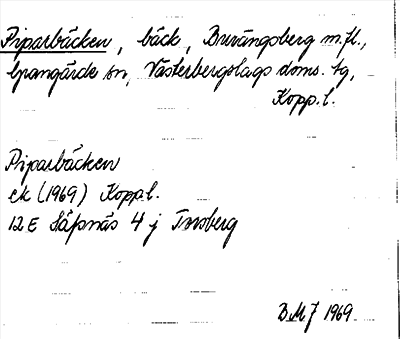 Piparbäcken, bäck, Burängsberg m.fl.,
Grangärde sn, Västerbergslags doms. tg,
Kopp.l.
Piparbäcken
ek (1969) Kopp.l.
12E Säfsnäs 4 j Tursberg
B.M.J 1969